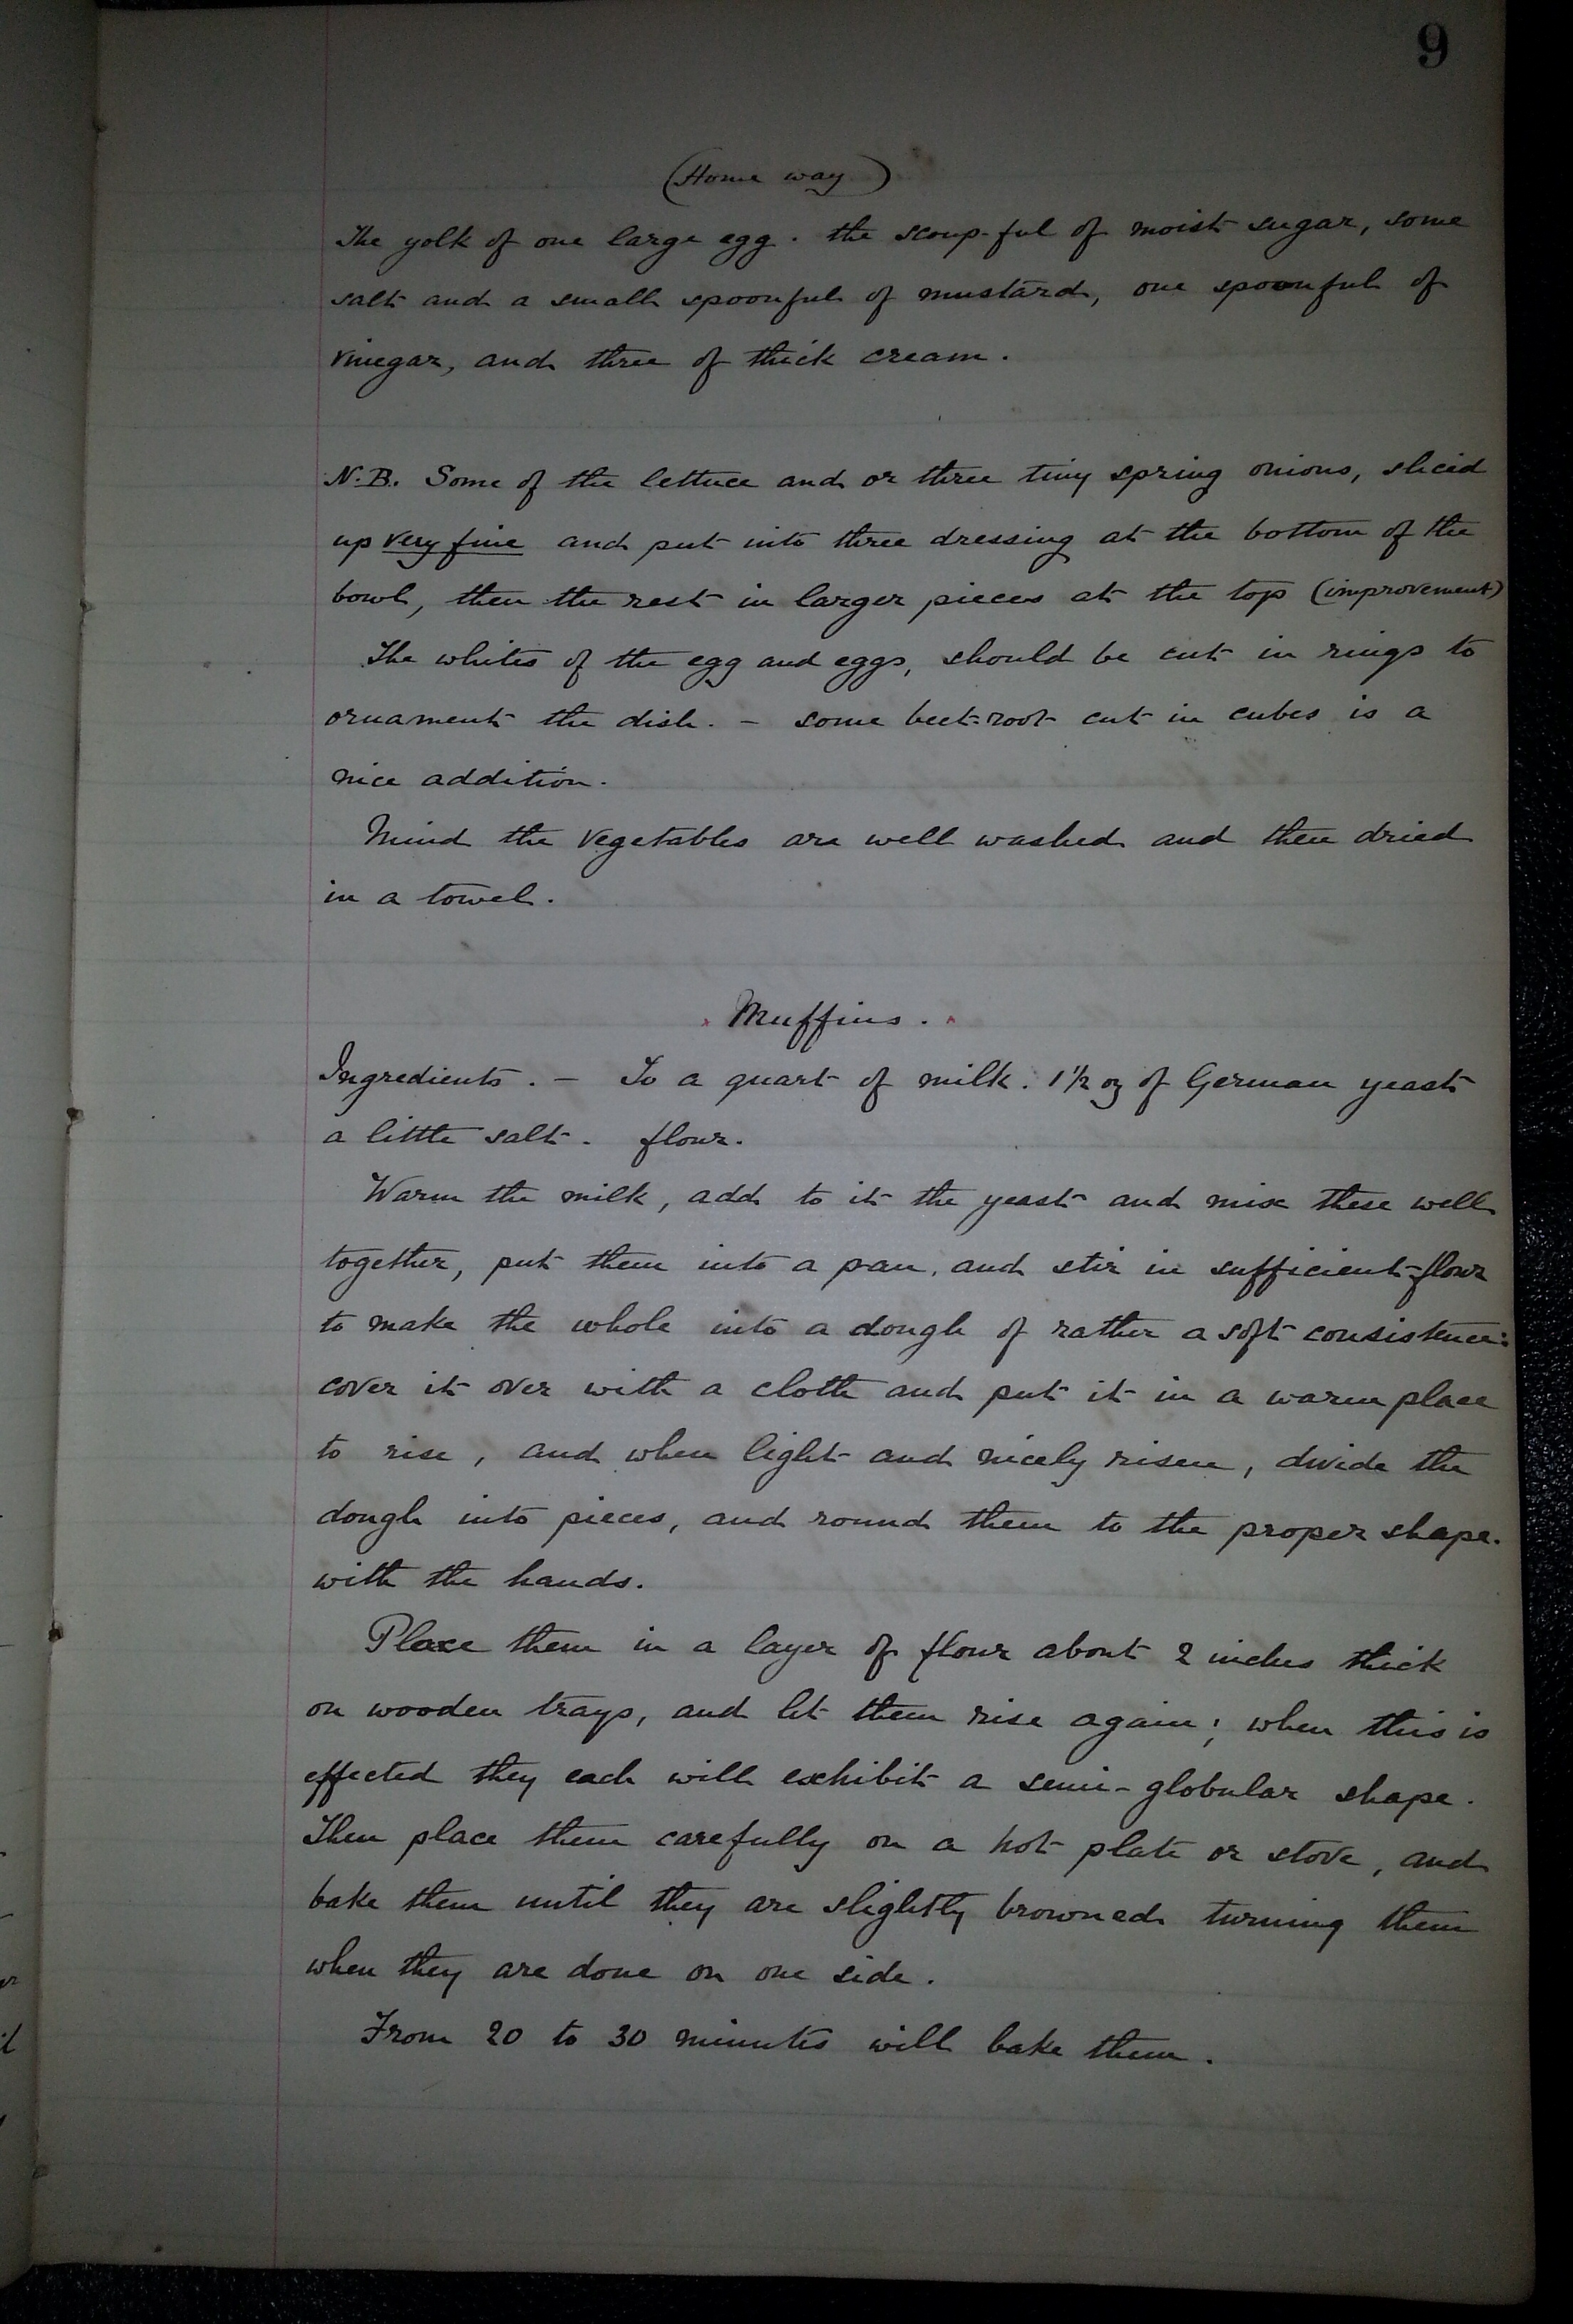 9
(Home way)
The yolk of one large egg. the scoup-ful of moist sugar, some
salt and a small spoonful of mustard, one spoonful of
vinegar, and three of thick cream.
N.B. Some of the lettuce and or three tiny spring onions, sliced
up very fine and put into three dressing at the bottom of the
bowl, then the rest in larger pieces at the top (improvement)
The whites of the egg and eggs, should be cut in rings to
ornament the dish. - some beet-root cut in cubes is a
nice addition.
Mind the vegetables are well washed and then dried
in a towel.
Muffins.
Ingredients. - To a quart of milk. 1½ oz of German yeast
a little salt. flour.
Warm the milk, add to it the yeast and mix these well
together, put them into a pan, and stir in sufficient flour
to make the whole into a dough of rather a soft consistence:
cover it over with a cloth and put it in a warm place
to rise, and when light and nicely risen, divide the
dough into pieces, and round them to the proper shape.
with the hands.
Place them in a layer of flour about 2 inches thick
on wooden trays, and let them rise again; when this is
effected they each will exhibit a semi-globular shape.
Then place them carefully on a hot plate or stove, and
bake them until they are slightly browned turning them
when they are done on one side.
From 20 to 30 minutes will bake them.